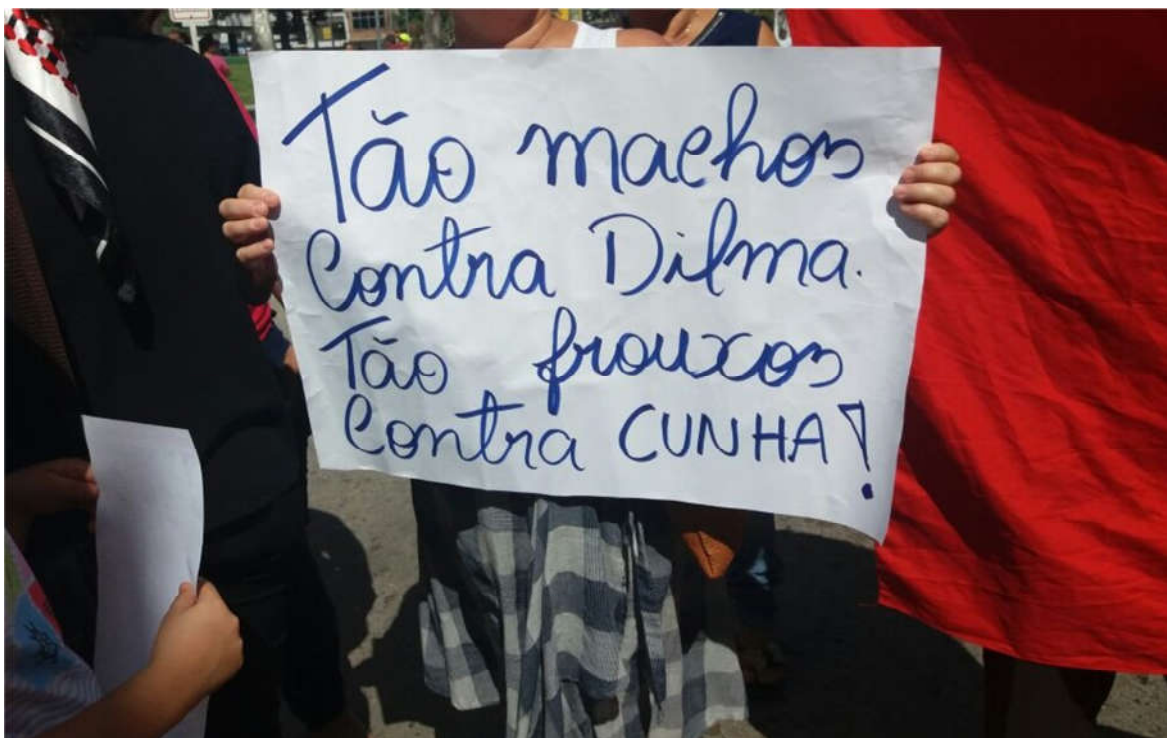 Tão machos
Contra Dilma.
Tão frouxos
Contra CUNHA!